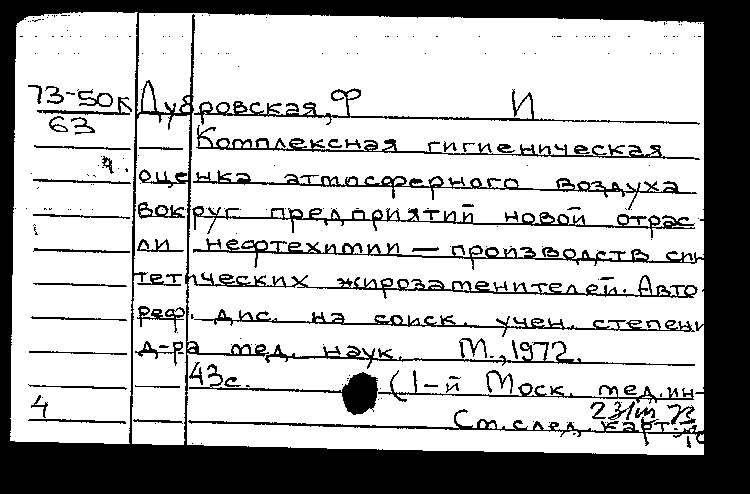 73-50к Дубровская, Ф И
63
Комплексная гигиеническая
оценка атмосферного воздуха
вокруг предприятий новой отрас-
ли нефтехимии — производств син
тетических жирозаменителей. Авто-
реф. дис. на соиск. учен. степени
д-ра мед. наук. М., 1972.
43с. (1-й Моск. мед. ин-
4 23/III 73
См. след. карт.